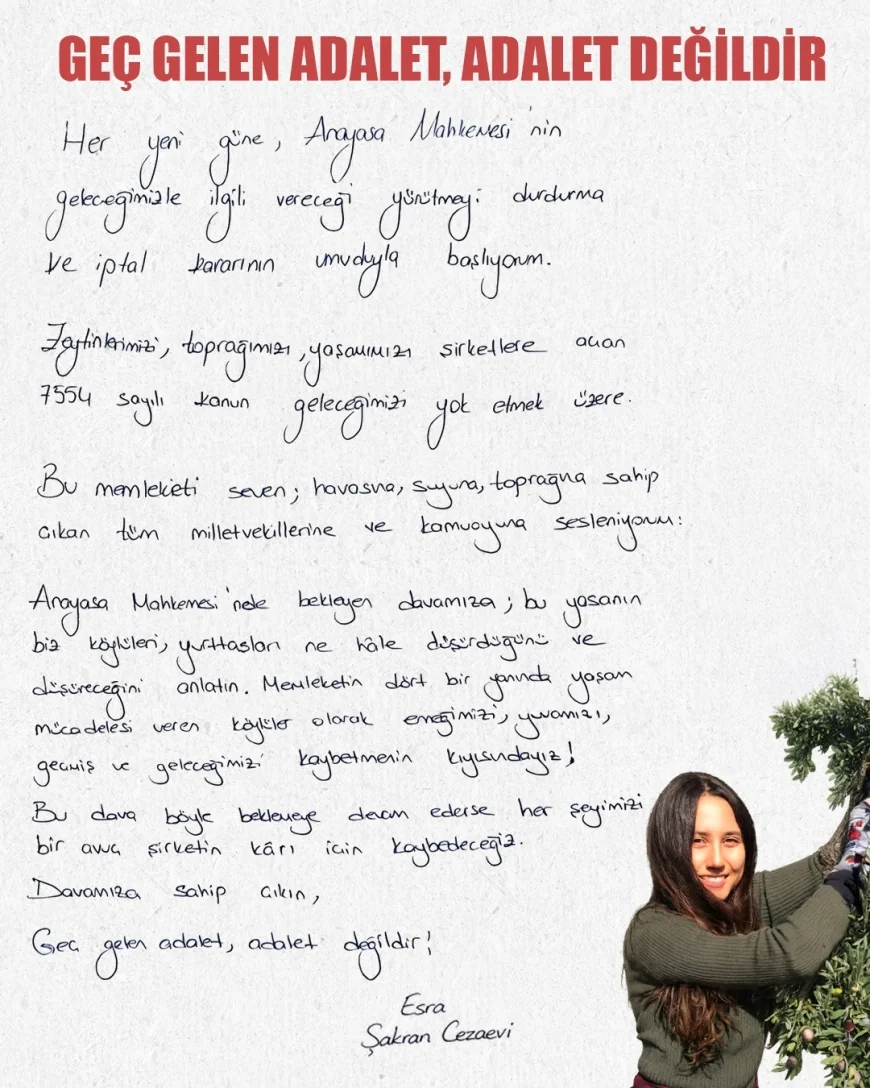 GEÇ GELEN ADALET, ADALET DEĞİLDİR
Her yeni güne, Anayasa Mahkemesi'nin
geleceğimizle ilgili vereceği yürütmeyi durdurma
ve iptal kararının umuduyla başlıyorum.
Zeytinlerimizi, toprağımızı, yaşamımızı şirketlere açan
7554 sayılı kanun geleceğimizi yok etmek üzere.
Bu memleketi seven; havasına, suyuna, toprağına sahip
çıkan tüm milletvekillerine ve kamuoyuna sesleniyorum:
Anayasa Mahkemesi'nde bekleyen davamıza; bu yasanın
biz köylüleri, yurttaşları ne hâle düşürdüğünü ve
düşüreceğini anlatın. Memleketin dört bir yanında yaşam
mücadelesi veren köylüler olarak emeğimizi, yuvamızı,
geçmiş ve geleceğimizi kaybetmenin kıyısındayız!
Bu dava böyle beklemeye devam ederse her şeyimizi
bir avuç şirketin kârı için kaybedeceğiz.
Davamıza sahip çıkın,
Geç gelen adalet, adalet değildir!
Esra
Şakran Cezaevi